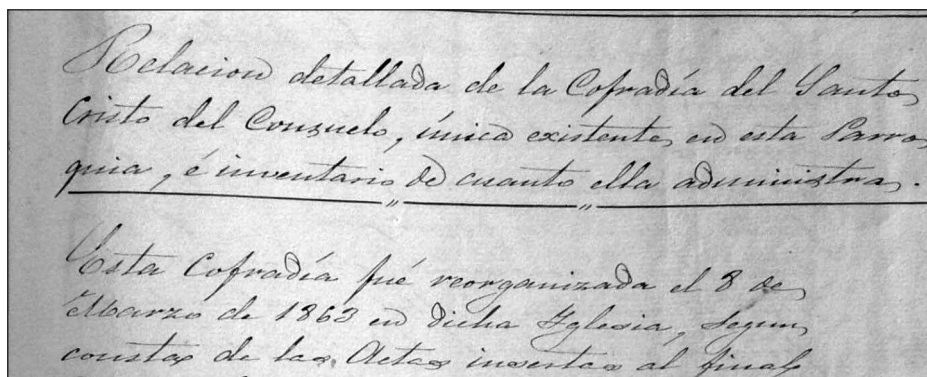 Relacion detallada de la Cofradía del Santo
Cristo del Consuelo, única existente en esta Parro
quia, é inventario de cuanto ella administra.
Esta Cofradía fué reorganizada el 8 de
Marzo de 1863 en dicha Yglesia, segun
consta de las Actas insertas al final